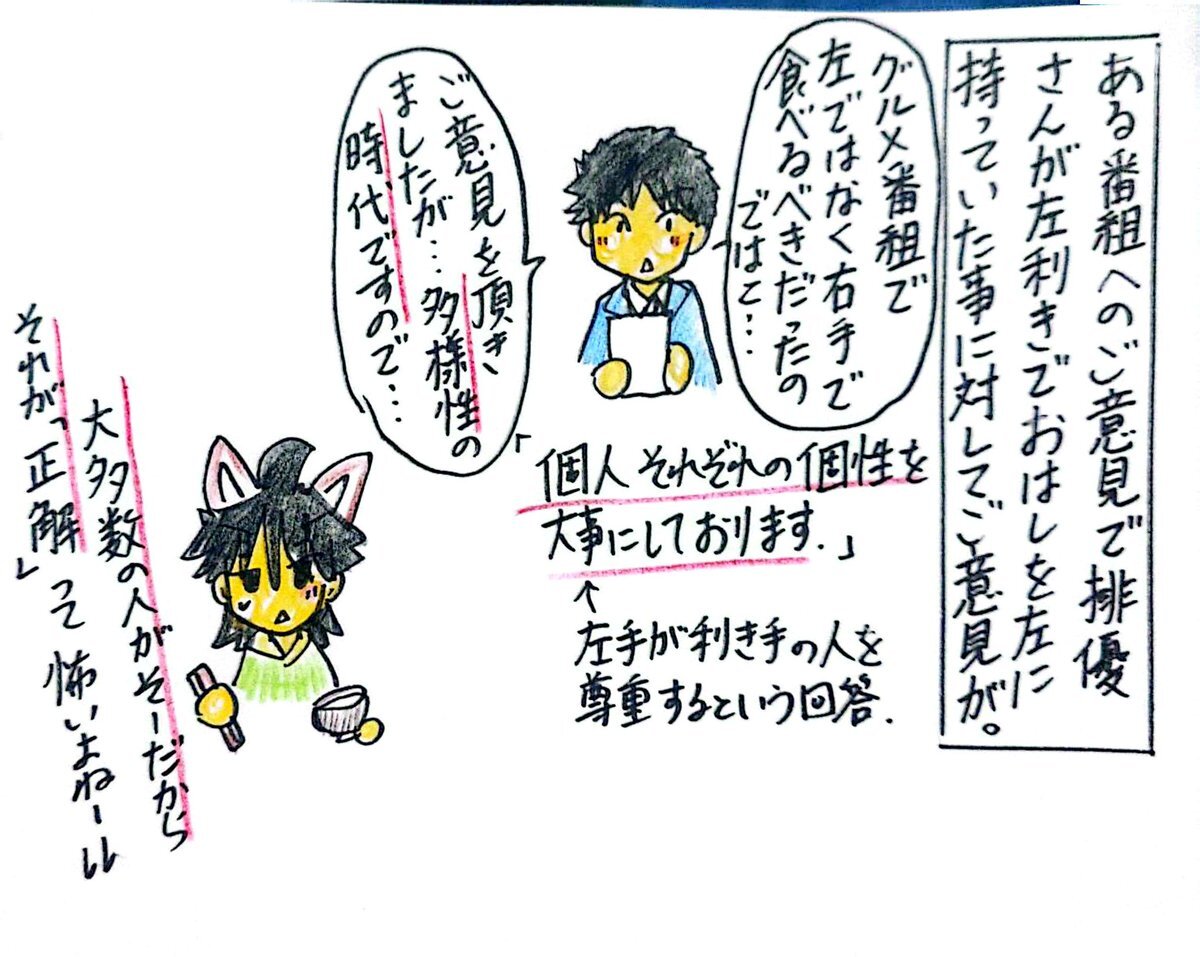 ある番組へのご意見で排優
さんが左利きでおはしを左に
持っていた事に対してご意見が。
グルメ番組で
左ではなく右手で
食べるべきだったの
ではと…
ご意見を頂き
ましたが…多様性の
時代ですので…
「個人それぞれの個性を
大事にしております.」
↑
左手が利き手の人を
尊重するという回答.
大多数の人がそーだから
それが「正解」って怖いよねー!!